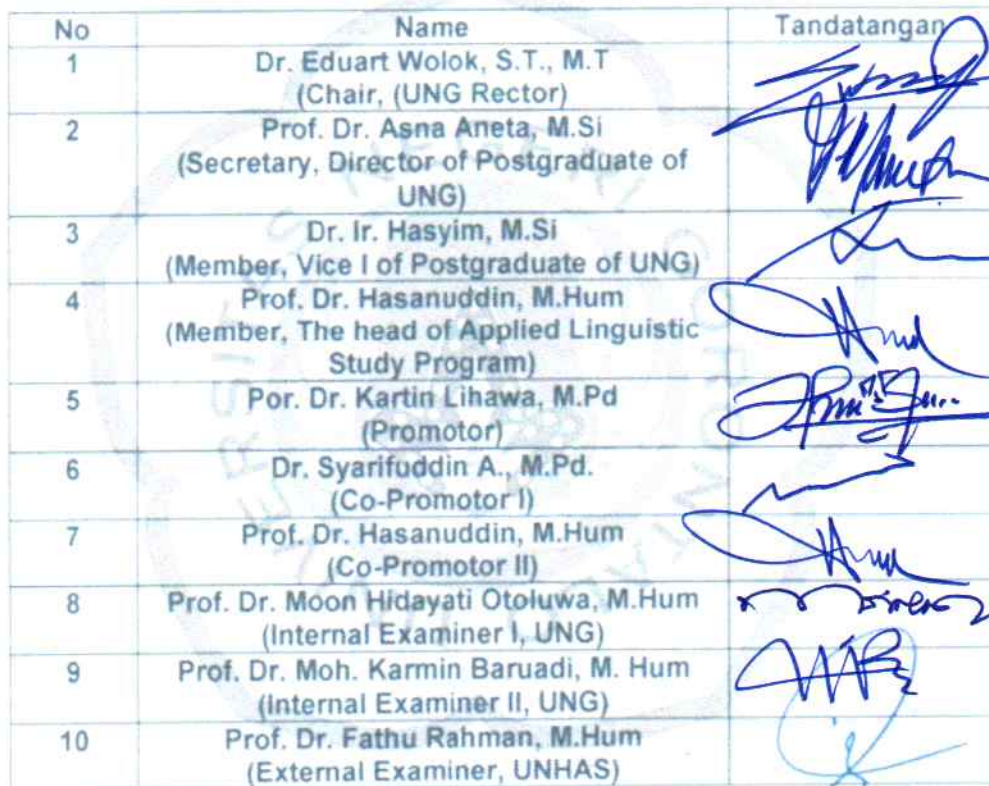 No Name Tandatangan
1 Dr. Eduart Wolok, S.T., M.T
(Chair, (UNG Rector)
2 Prof. Dr. Asna Aneta, M.Si
(Secretary, Director of Postgraduate of
UNG)
3 Dr. Ir. Hasyim, M.Si
(Member, Vice I of Postgraduate of UNG)
4 Prof. Dr. Hasanuddin, M.Hum
(Member, The head of Applied Linguistic
Study Program)
5 Por. Dr. Kartin Lihawa, M.Pd
(Promotor)
6 Dr. Syarifuddin A., M.Pd.
(Co-Promotor I)
7 Prof. Dr. Hasanuddin, M.Hum
(Co-Promotor II)
8 Prof. Dr. Moon Hidayati Otoluwa, M.Hum
(Internal Examiner I, UNG)
9 Prof. Dr. Moh. Karmin Baruadi, M. Hum
(Internal Examiner II, UNG)
10 Prof. Dr. Fathu Rahman, M.Hum
(External Examiner, UNHAS)